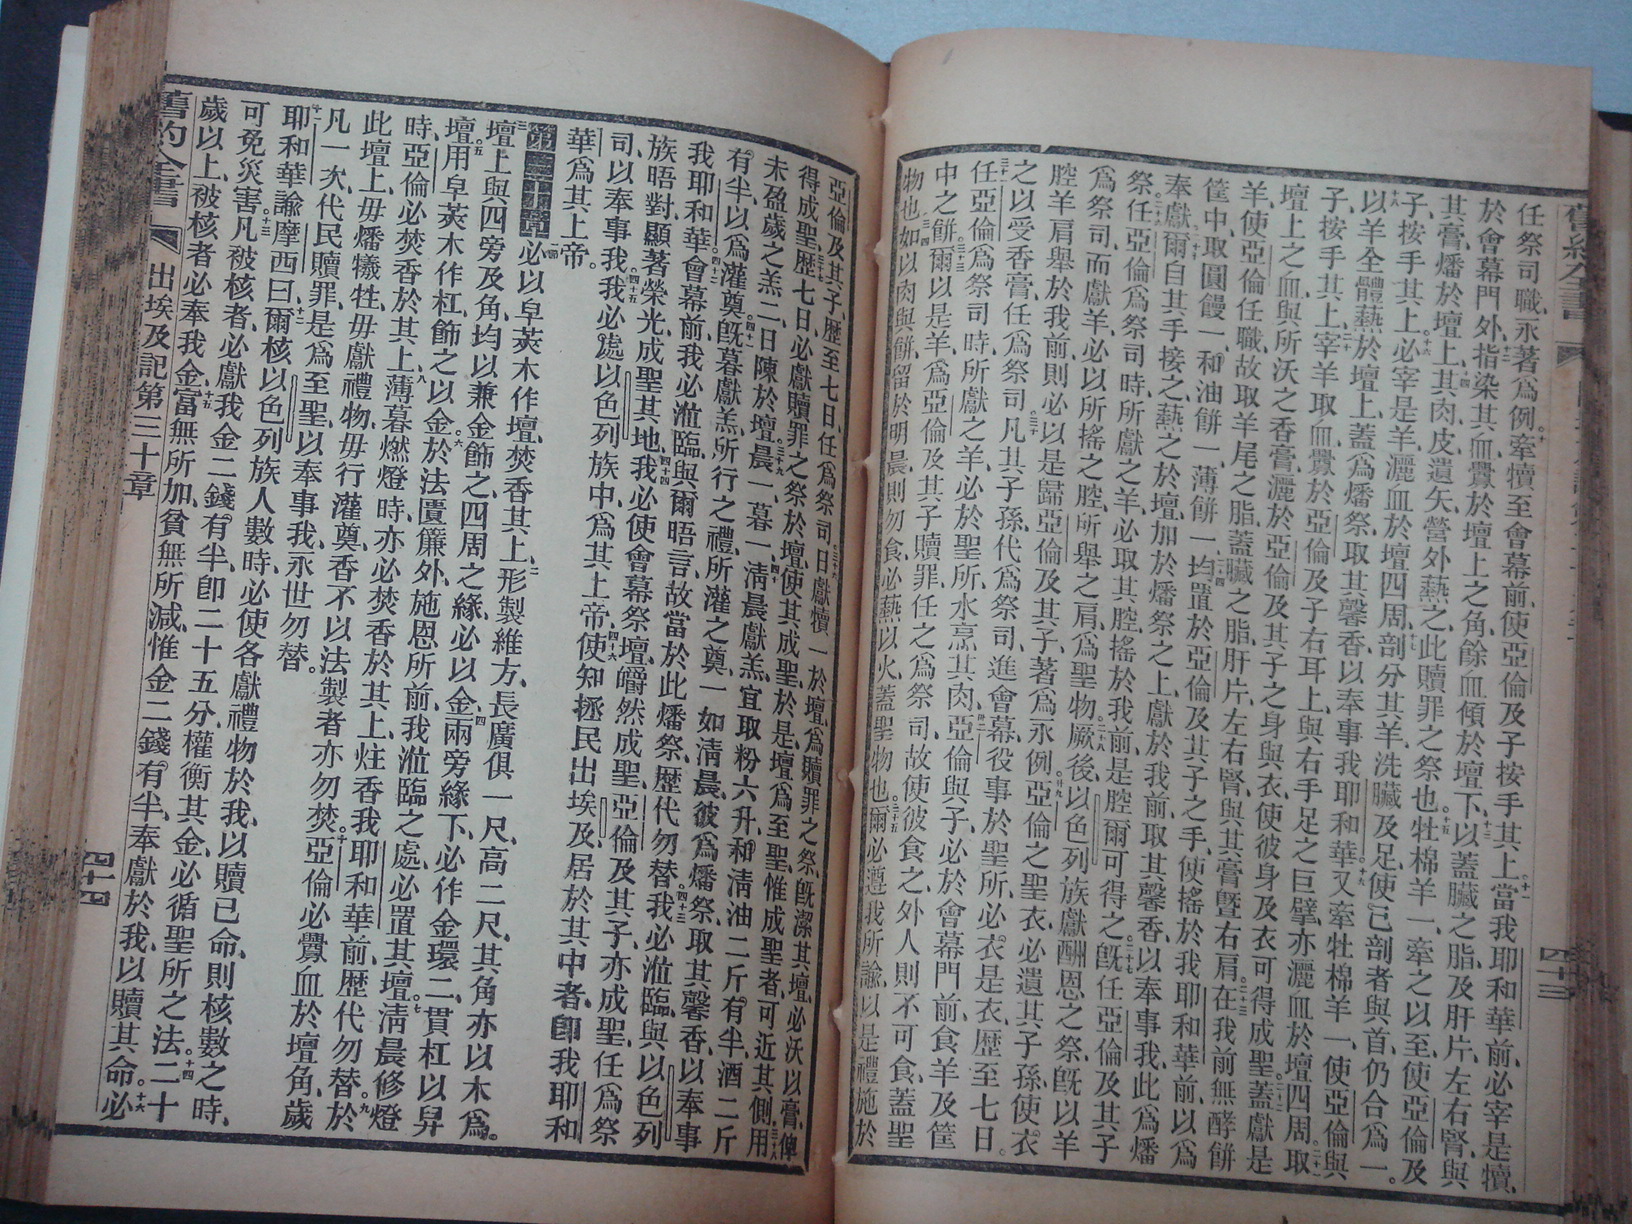 任祭司職、永著爲例、牽犢至會幕前、使亞倫及子按手其上、當我耶和華前、必宰是犢、
於會幕門外、指染其血、釁於壇上之角、餘血傾於壇下、以蓋臟之脂、及肝片、左右腎、與
其膏、燔於壇上、其肉皮遺矢、營外爇之、此贖罪之祭也、牡棉羊一、牽之以至、使亞倫及
子、按手其上、必宰是羊、灑血於壇四周、剖分其羊、洗臟及足、使已剖者與首、仍合爲一。
以羊全體爇於壇上、蓋爲燔祭、取其馨香、以奉事我耶和華、又牽牡棉羊一、使亞倫與
子按手其上、宰羊取血、釁於亞倫及子右耳上、與右手足之巨擘、亦灑血於壇四周、取
壇上之血、與所沃之香膏、灑於亞倫及其子之身與衣、使彼身及衣、可得成聖、蓋獻是
羊、使亞倫任職、故取羊尾之脂、蓋臟之脂、肝片、左右腎、與其膏、曁右肩、在我前無酵餅
筐中、取圓饅一、和油餅一、薄餅一、均置於亞倫及其子之手、使搖於我耶和華前、以爲
奉獻、爾自其手接之、爇之於壇、加於燔祭之上、獻於我前、取其馨香、以奉事我、此爲燔
祭、任亞倫爲祭司時、所獻之羊、必取其腔、搖於我前、是腔爾可得之、旣任亞倫及其子
爲祭司、而獻羊、必以所搖之腔、所舉之肩、爲聖物、厥後以色列族獻酬恩之祭、旣以羊
腔羊肩舉於我前、則必以是歸亞倫及其子、著爲永例、亞倫之聖衣、必遺其子孫、使衣
之以受香膏、任爲祭司、凡其子孫、代爲祭司、進會幕、役事於聖所、必衣是衣、歷至七日。
任亞倫爲祭司時、所獻之羊、必於聖所、水烹其肉、亞倫與子、必於會幕門前、食羊及筐
中之餅、爾以是羊、爲亞倫及其子贖罪、任之爲祭司、故使彼食之、外人則不可食、蓋聖
物也、如以肉與餅、留於明晨、則勿食、必爇以火、蓋聖物也、爾必遵我所諭、以是禮施於
亞倫及其子、歷至七日、任爲祭司、日獻犢一於壇、爲贖罪之祭、旣潔其壇、必沃以膏、俾
得成聖、歷七日、必獻贖罪之祭於壇、使其成聖、於是壇爲至聖、惟成聖者、可近其側、用
未盈歲之羔二、日陳於壇、晨一、暮一、淸晨獻羔、宜取粉六升、和淸油二斤有半、酒二斤
有半、以爲灌奠、旣暮獻羔、所行之禮、所灌之奠、一如淸晨、彼爲燔祭、取其馨香、以奉事
我耶和華、會幕前、我必涖臨、與爾晤言、故當於此燔祭、歷代勿替、我必涖臨、與以色列
族晤對、顯著榮光、成聖其地、我必使會幕祭壇、皭然成聖、亞倫及其子、亦成聖、任爲祭
司、以奉事我、我必處以色列族中、爲其上帝、使知拯民出埃及、居於其中者、卽我耶和
華、爲其上帝。
第三十章 必以皁莢木作壇、焚香其上、形製維方、長廣俱一尺、高二尺、其角亦以木爲。
壇上與四旁及角、均以兼金飾之、四周之緣、必以金、兩旁緣下、必作金環二、貫杠以舁
壇、用皁莢木作杠、飾之以金、於法匱簾外、施恩所前、我涖臨之處、必置其壇、淸晨修燈
時、亞倫必焚香於其上、薄暮燃燈時、亦必焚香於其上、炷香我耶和華前、歷代勿替、於
此壇上、毋燔犧牲、毋獻禮物、毋行灌奠、香不以法製者、亦勿焚、亞倫必釁血於壇角、歲
凡一次、代民贖罪、是爲至聖、以奉事我、永世勿替。
耶和華諭摩西曰、爾核以色列族人數時、必使各獻禮物於我、以贖己命、則核數之時、
可免災害、凡被核者、必獻我金二錢有半、卽二十五分、權衡其金、必循聖所之法、二十
歲以上、被核者、必奉我金、富無所加、貧無所減、惟金二錢有半、奉獻於我、以贖其命、必
舊約全書 出埃及記第三十章 四十四
舊約全書 四十三